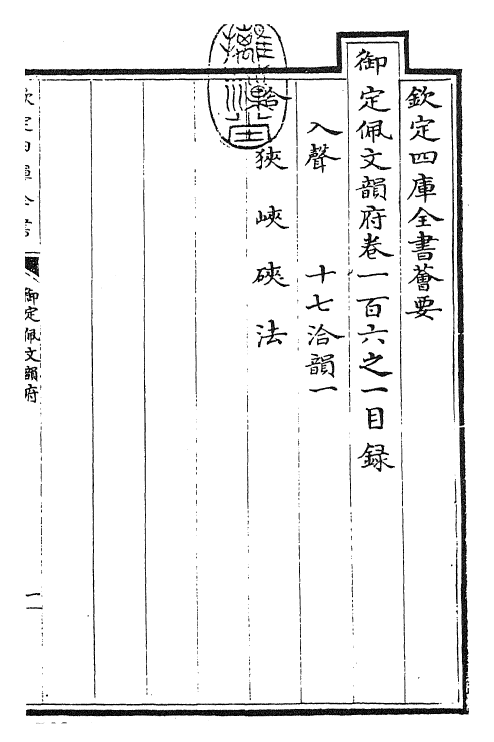 欽定四庫全書薈要
御定佩文韻府卷一百六之一目録
入聲 十七洽韻一
狹 峽 硤 法
欽定四庫全書
御定佩文韻府
一